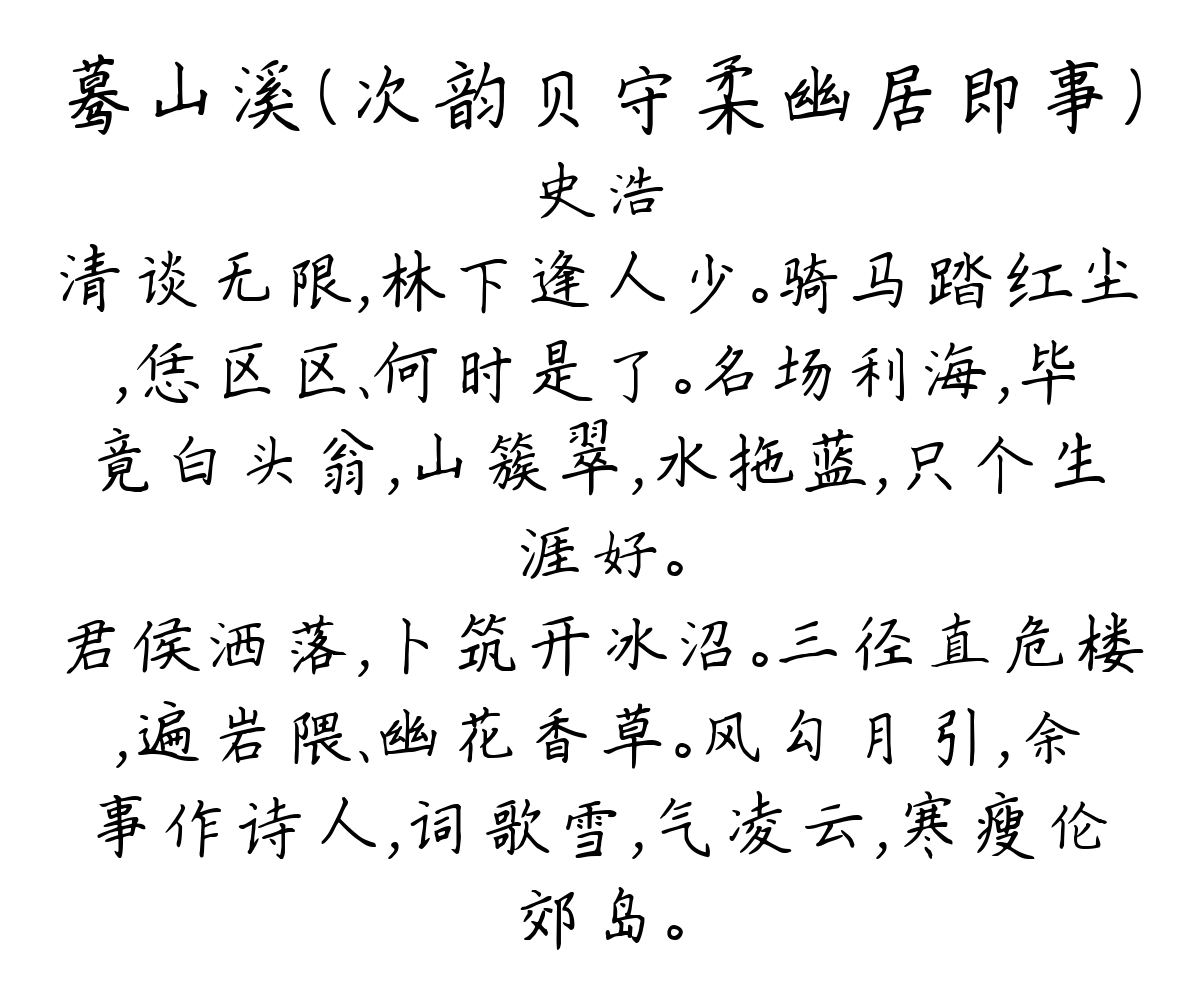 蓦山溪(次韵贝守柔幽居即事)
史浩
清谈无限,林下逢人少。骑马踏红尘
,恁区区、何时是了。名场利海,毕
竟白头翁,山簇翠,水拖蓝,只个生
涯好。
君侯洒落,卜筑开冰沼。三径直危楼
,遍岩隈、幽花香草。风勾月引,余
事作诗人,词歌雪,气凌云,寒瘦伦
郊岛。